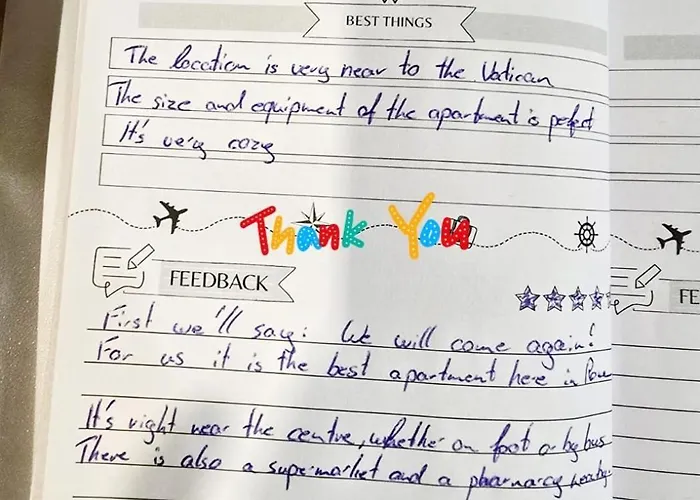 BEST THINGS
The location is very near to the Vatican
The size and equipment of the apartment is perfect
It's very cozy
Thank You
FEEDBACK
FE
First we'll say: We will come again!
For us it is the best apartment here in
It's right near the centre, whether on foot or by bus
There is also a supermarket and a pharmacy nearby.